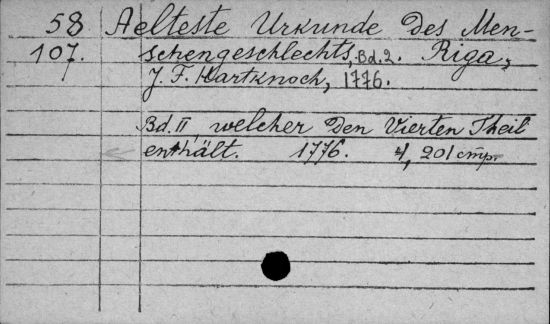 58 Aelteste Urkunde des Men-
107. schengeschlechts, Bd. 2. Riga,
J. F. Hartknoch, 1776.
Bd. II, welcher den Vierten Theil
enthält. 1776. 4, 201 стр.